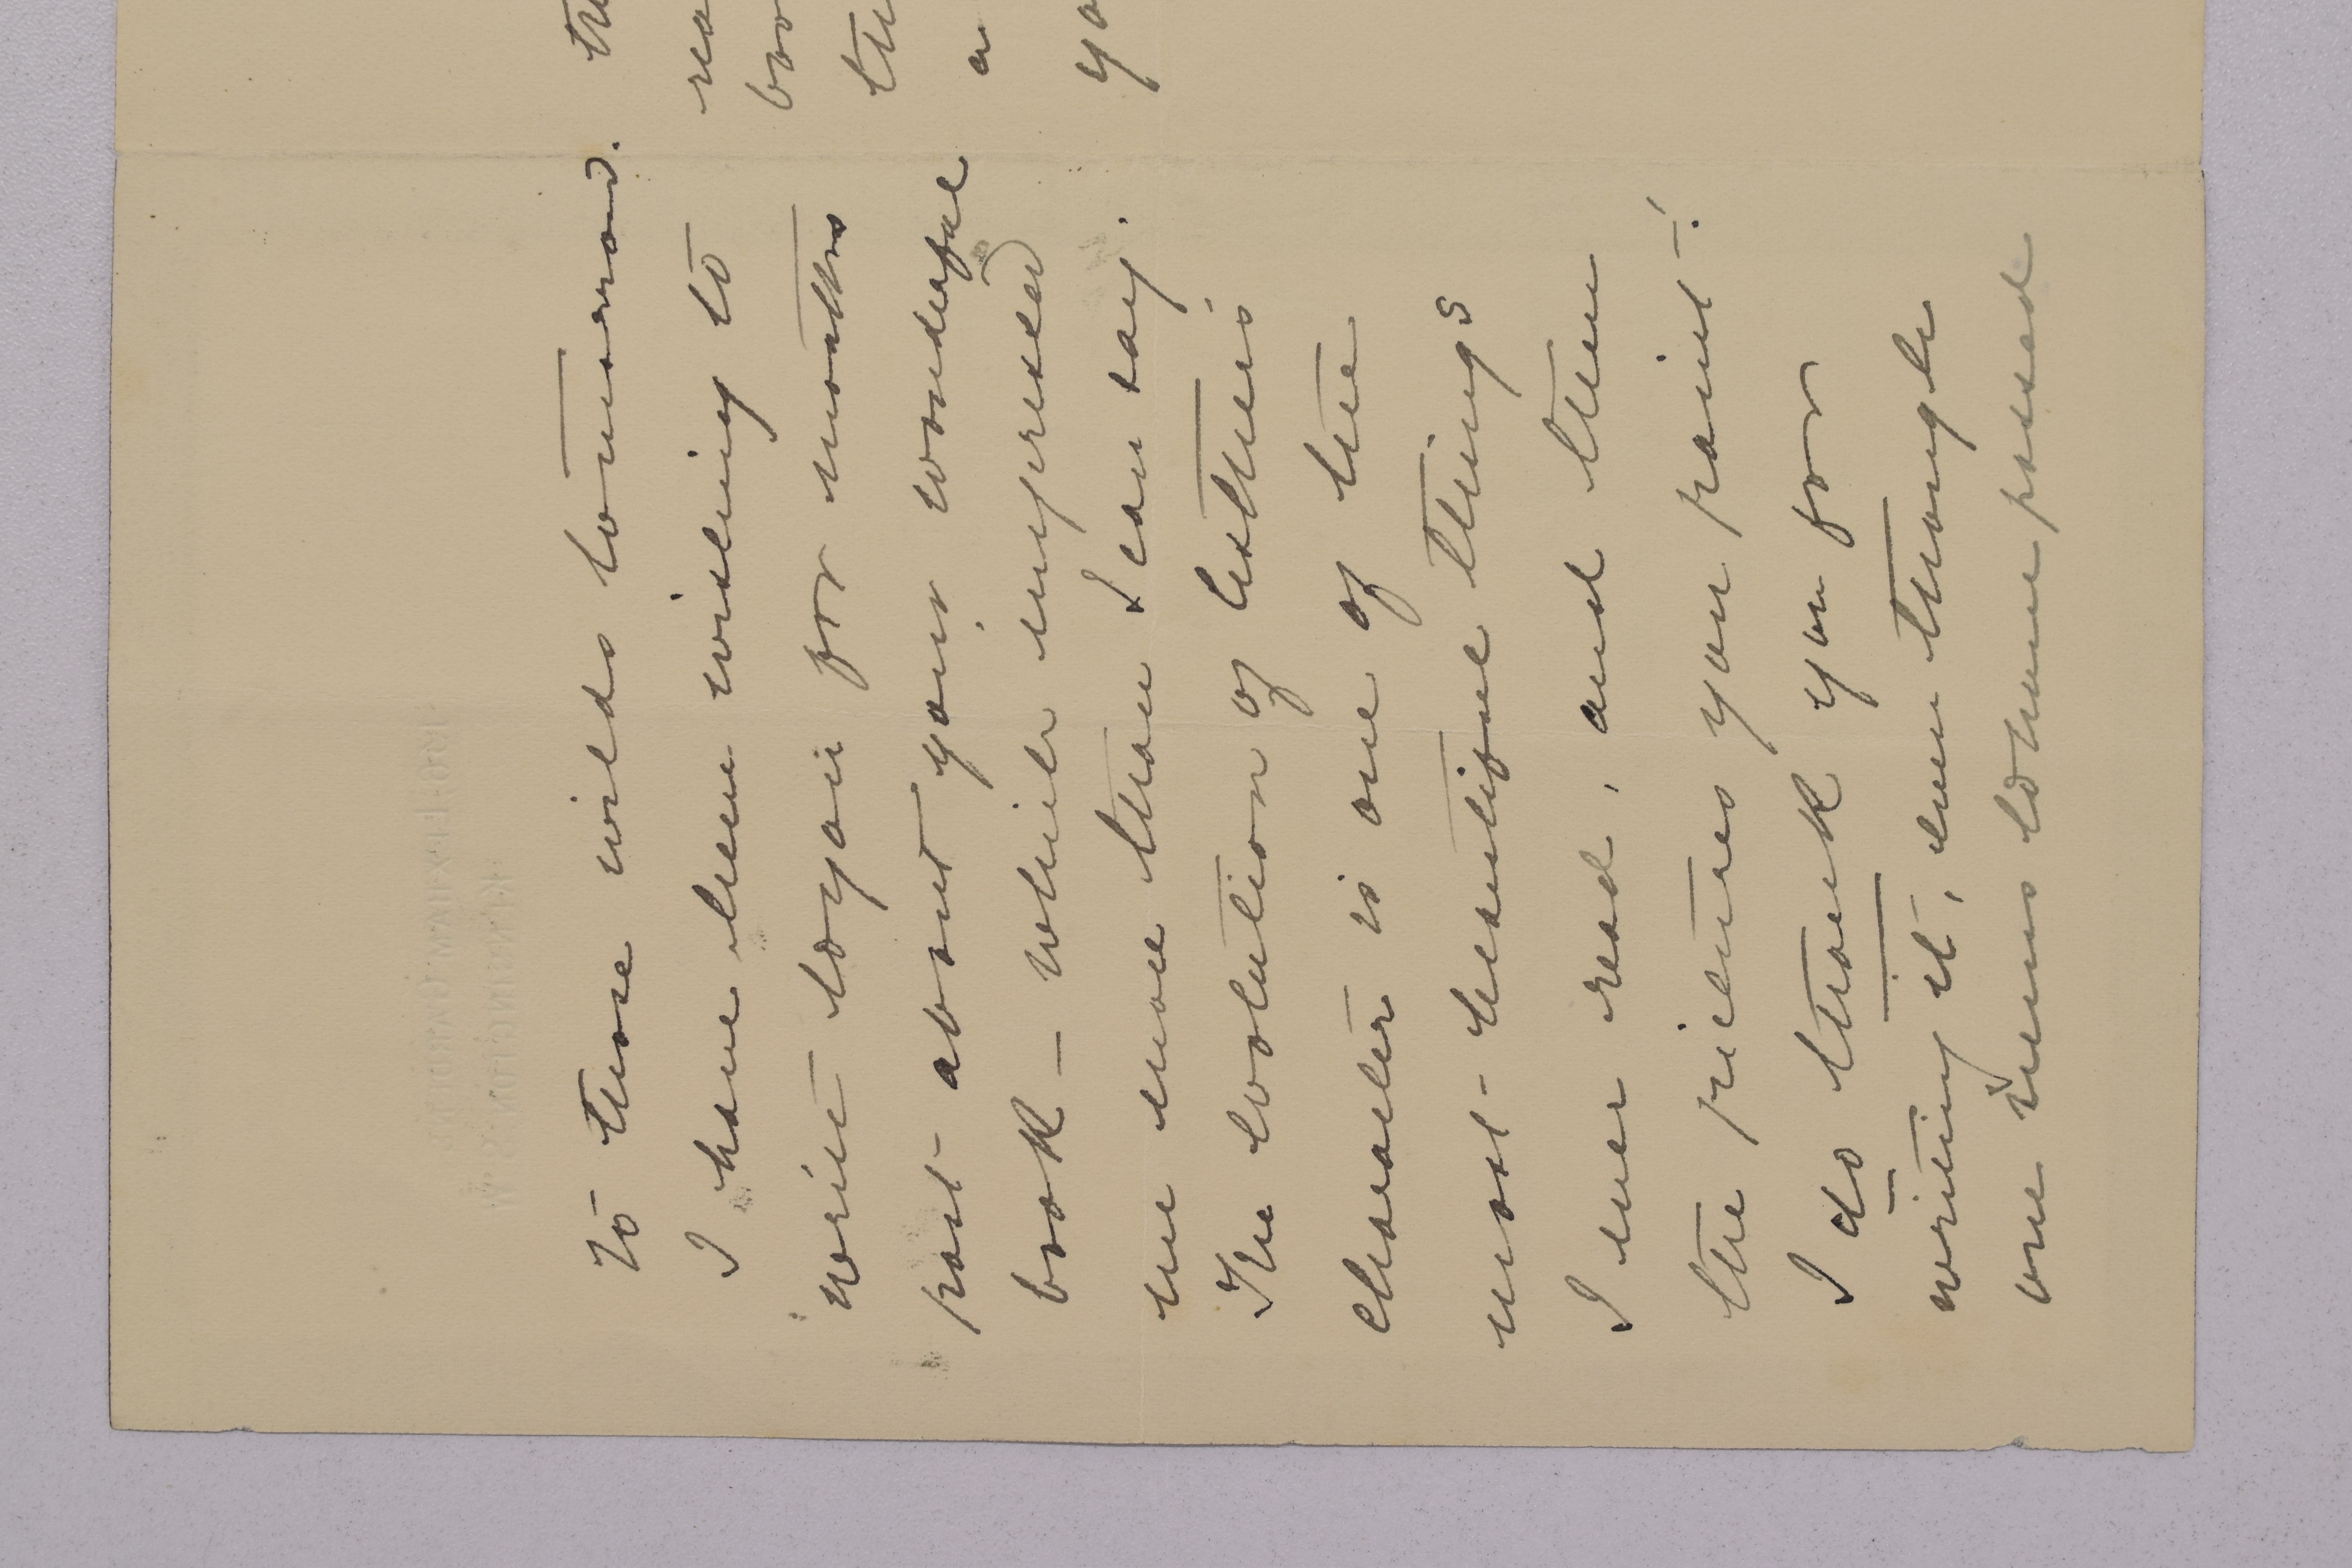 to those wilds tomorrow.
I have been wishing to
write to you for months
past about your wonderful
book – which impressed
me more than I can say.
The evolution of Esther's
character is one of the
most beautiful things
I ever read, and then
the pictures you paint!
I do thank you for
writing it, even though
one seems to have passed
a